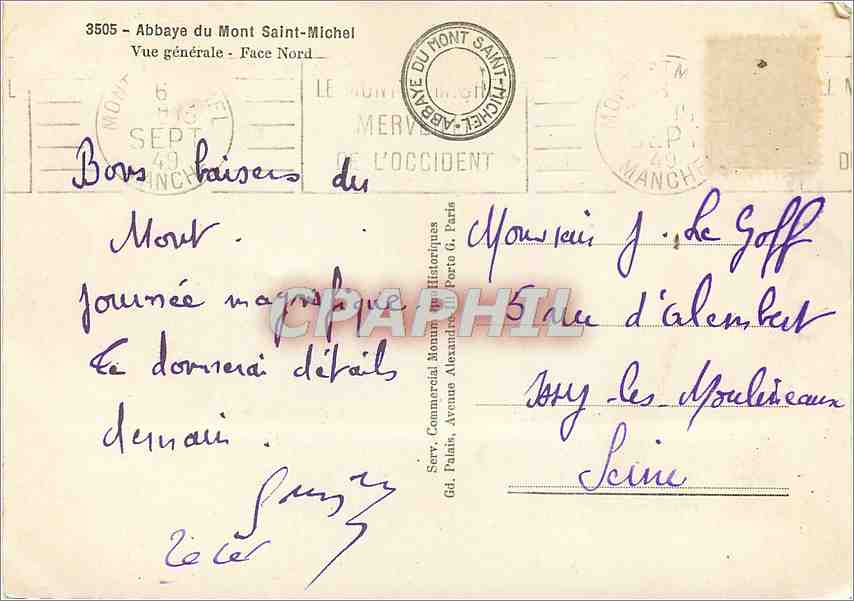 3505 - Abbaye du Mont Saint-Michel
Vue générale - Face Nord
ABBAYE DU MONT SAINT-MICHEL
6
SEPT
49
MANCHE
LE MONT
MERVE
DE L'OCCIDENT
SEPT
49
MANCHE
Bons baisers du
Mont.
journée magnifique
Te donnerai détails
demain.
Serv. Commercial Monuments Historiques
Gd. Palais, Avenue Alexandre III Porte G. Paris
CPAPHIL
Monsieur J. Le Goff
5 rue d'alembert
Issy-les-Moulineaux
Seine